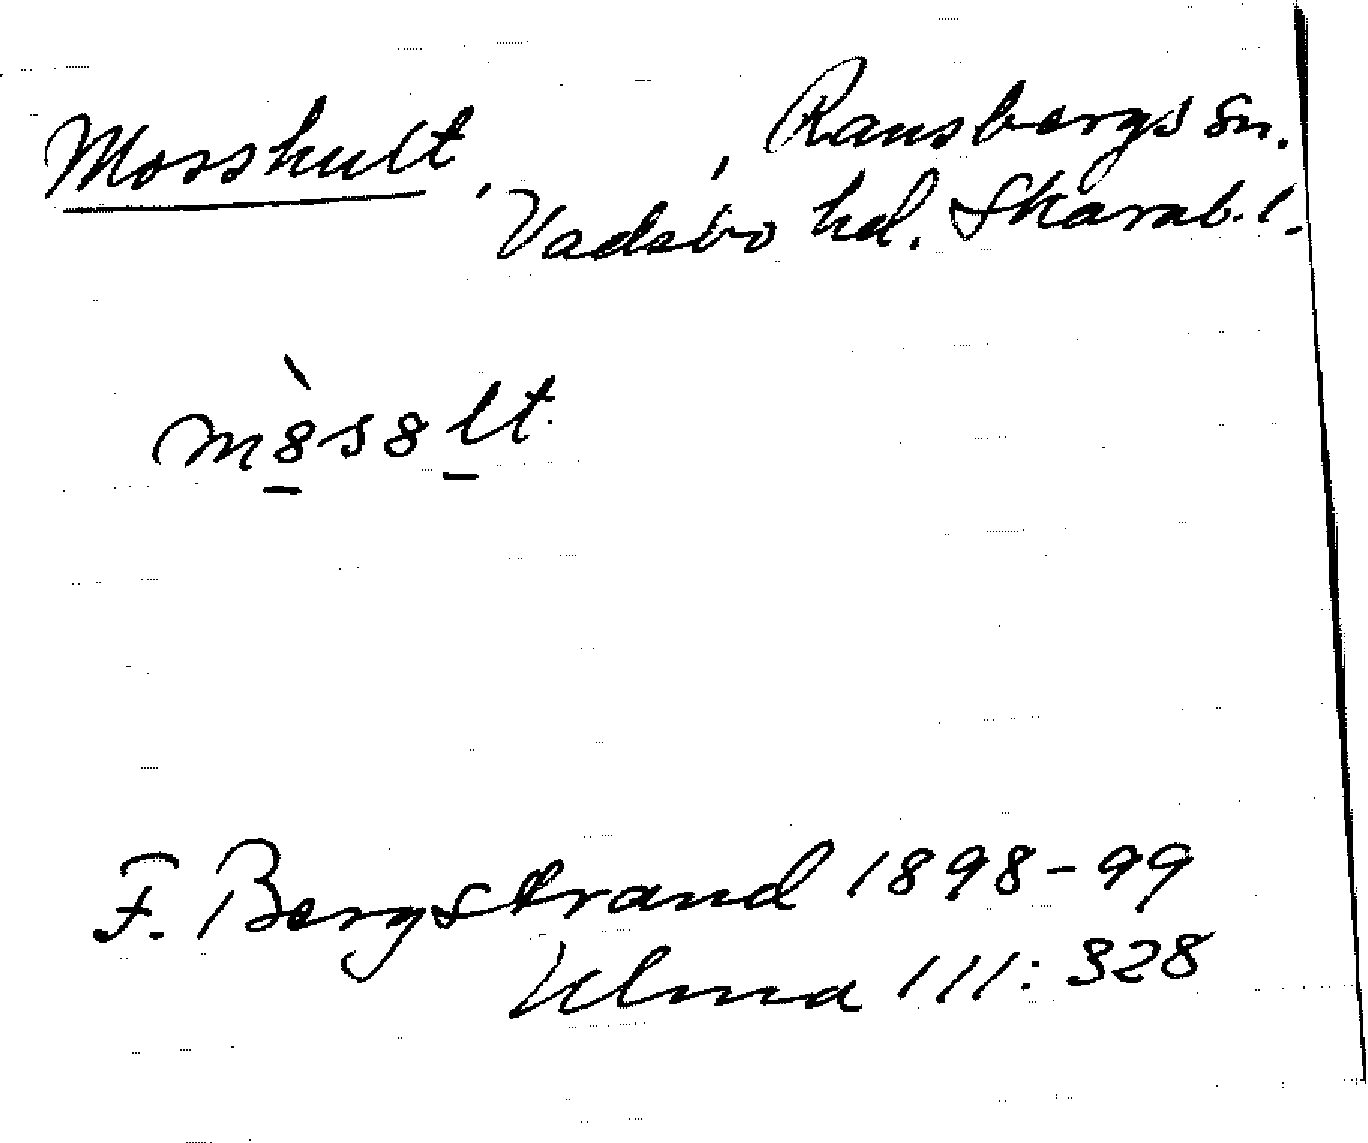 Mosshult, , Ransbergs sn.
Vadsbo hd. Skarab. l.
m8̀s8lt.
F. Bergstrand 1898-99
Ulma 111: 328